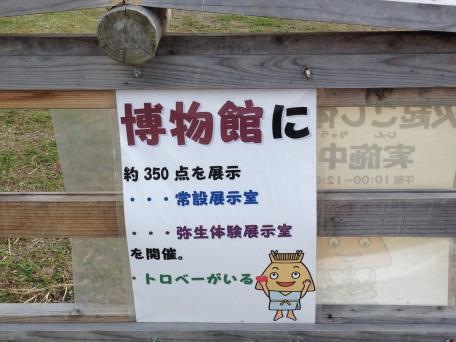 博物館に
約350点を展示
・・・常設展示室
・・・弥生体験展示室
を開催。
・トロベーがいる
火起こし体
じっし ちゅう
実施中
午前10:00~12:0